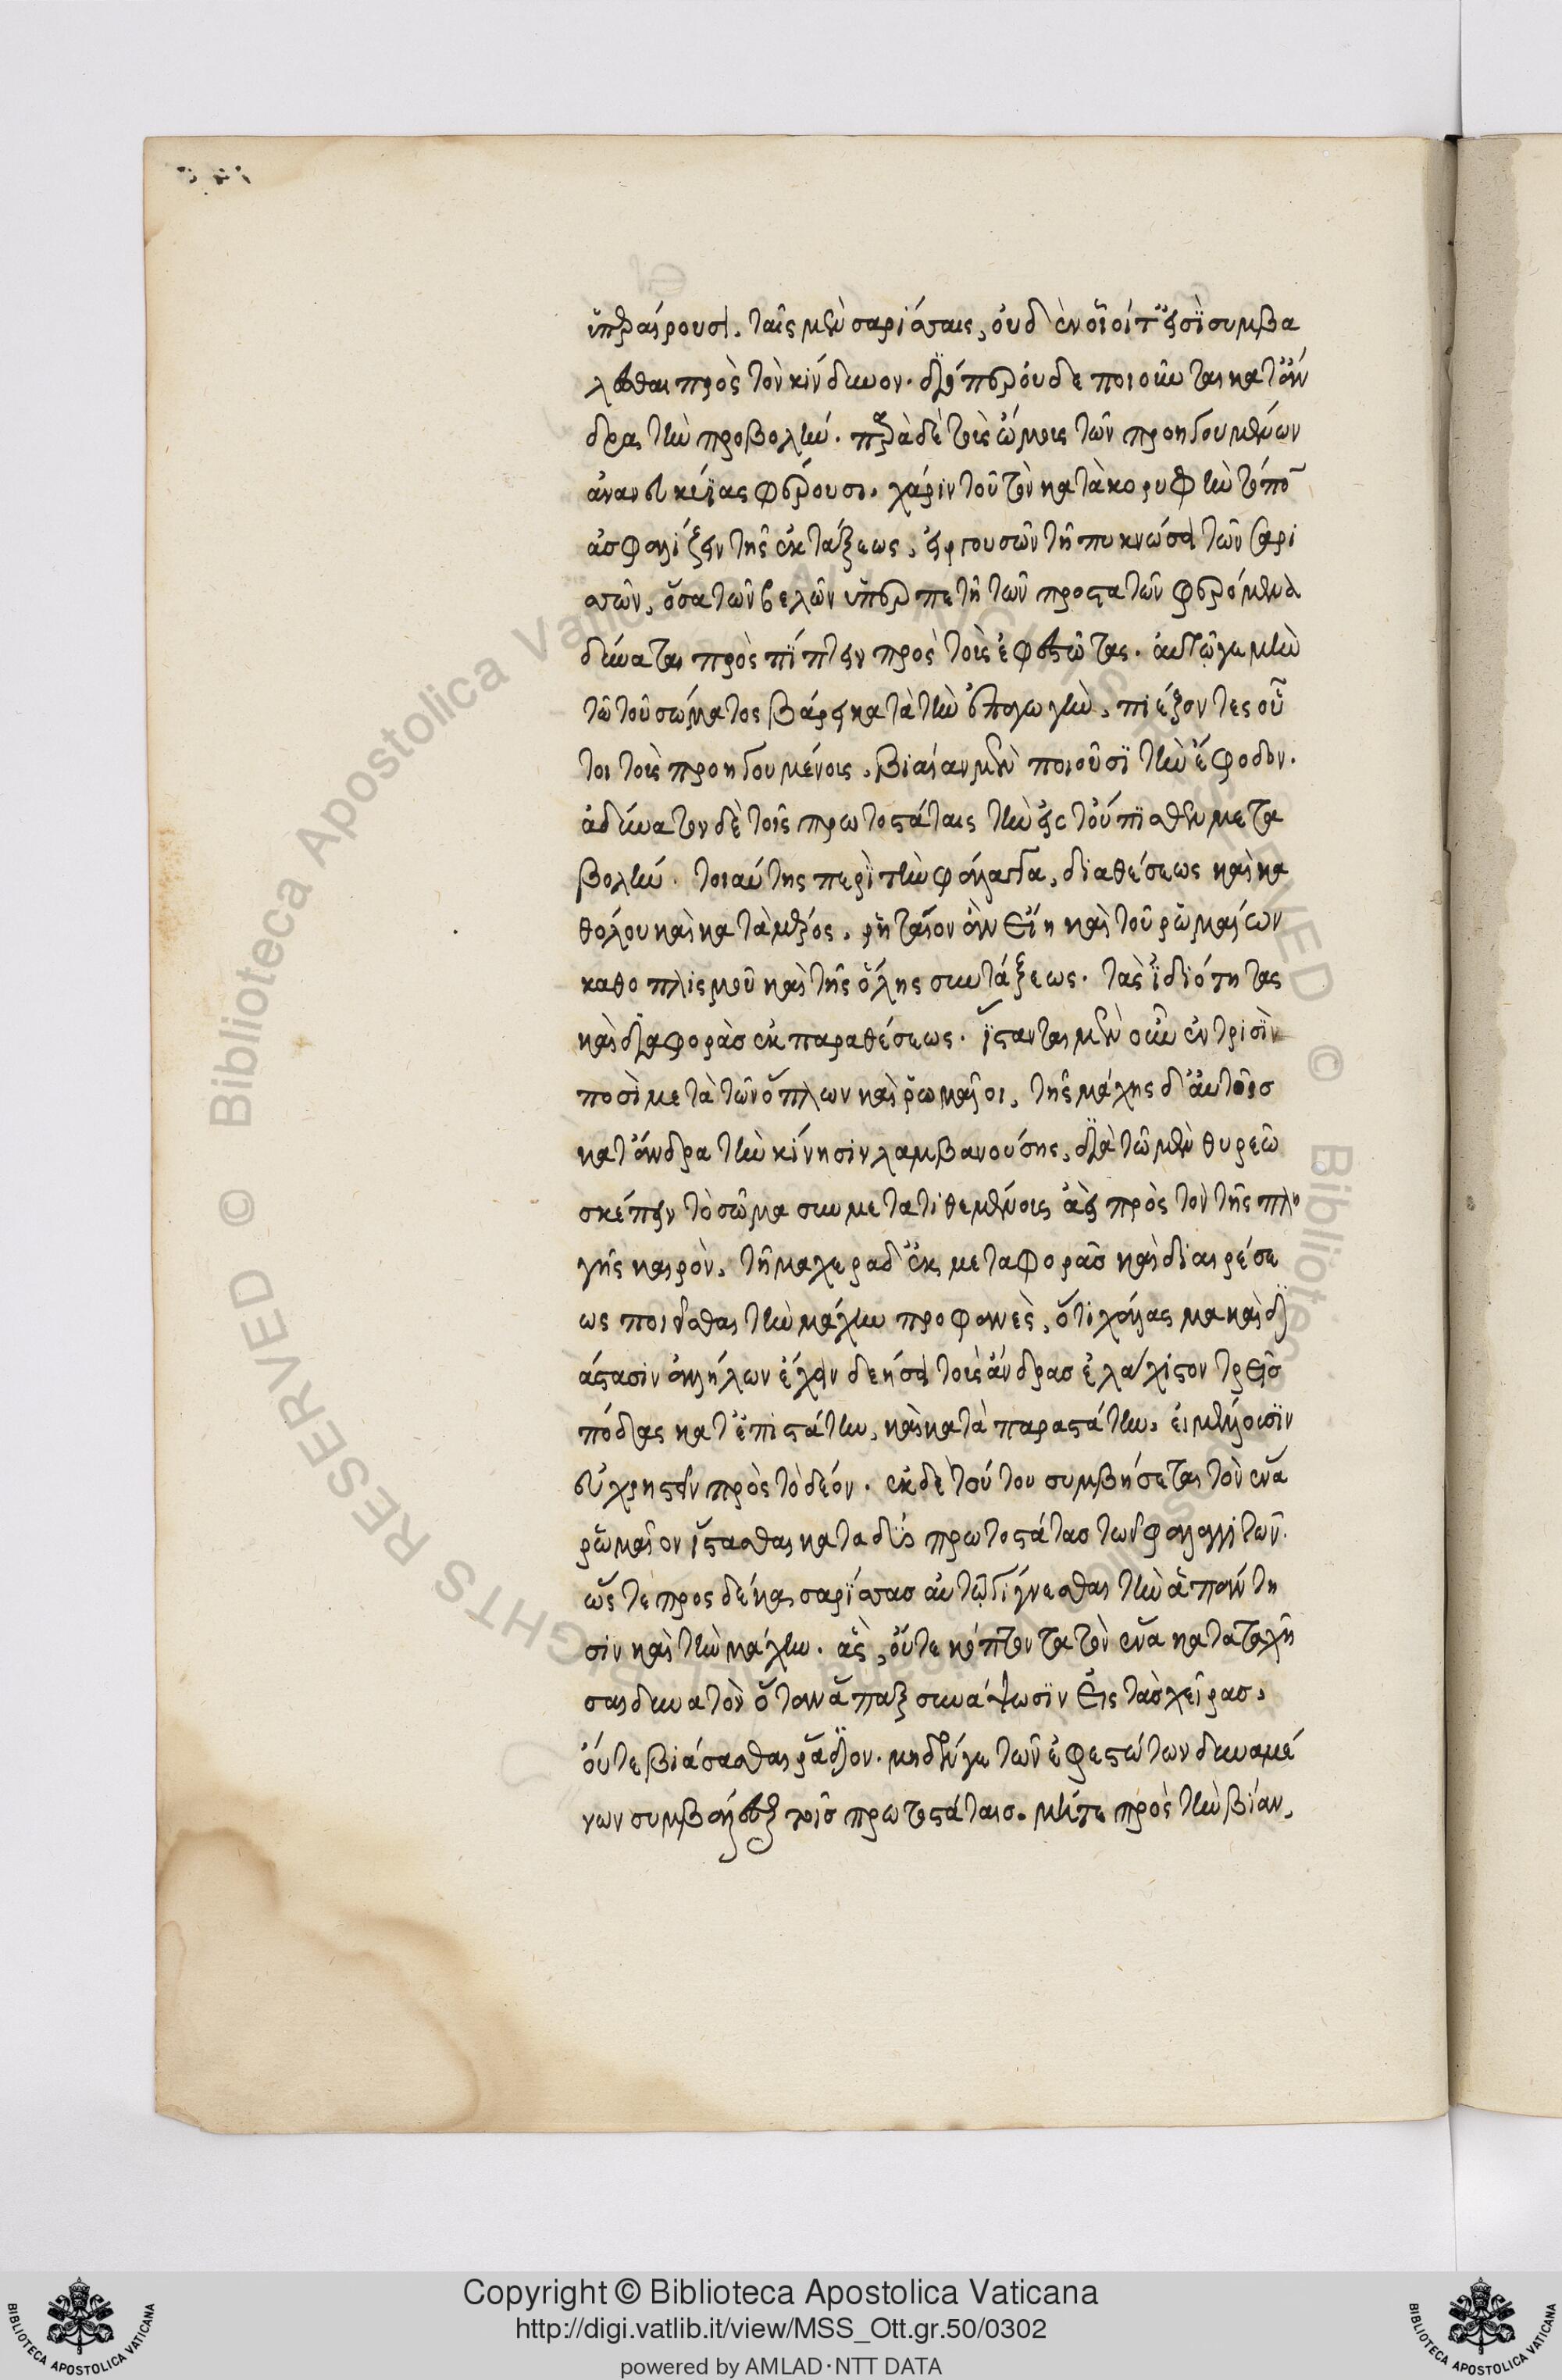 ὑπεραίρουσι, ταῖς μὲν σαρίσσαις, οὐδὲν οἷοί τ' εἰσὶ συμβα
λέσθαι πρὸς τὸν κίνδυνον. διόπερ οὐδὲ ποιοῦνται κατ' ἄν
δρα τὴν προβολήν. παρὰ δὲ τοῖς ὤμοις τῶν προηγουμένων
ἀνανευκείας φέρουσι, χάριν τοῦ τὸν κατὰ κορυφὴν τόπον
ἀσφαλίζειν τῆς ἐκτάξεως, εἰργουσῶν τῇ πυκνώσει τῶν σαρι
σσῶν, ὅσα τῶν βελῶν ὑπερπετῆ τῶν προστατῶν φερόμενα
δύναται προσπίπτειν πρὸς τοὺς ἐφεστῶτας. αὐτῷ γε μὴν
τῷ τοῦ σώματος βάρει κατὰ τὴν ἐπαγωγὴν, πιέζοντες οὗ
τοι τοὺς προηγουμένους, βιαίαν μὲν ποιοῦσι τὴν ἔφοδον.
ἀδύνατον δὲ τοῖς πρωτοστάταις τὴν εἰς τοὔπισθεν μετα
βολήν. τοιαύτης περὶ τὴν φάλαγγα, διαθέσεως καὶ κα
θόλου καὶ κατὰ μέρος, ῥητέον ἂν εἴη καὶ τοῦ ῥωμαίων
καθοπλισμοῦ καὶ τῆς ὅλης συντάξεως. τὰς ἰδιότητας
καὶ διαφορὰς ἐκ παραθέσεως. ἵστανται μὲν οὖν ἐν τρισὶν
ποσὶ μετὰ τῶν ὅπλων καὶ ῥωμαῖοι, τῆς μάχης δ' αὐτοῖς
κατ' ἄνδρα τὴν κίνησιν λαμβανούσης, διὰ τῶ μὲν θυρεῶ
σκέπειν τὸ σῶμα συμμετατιθεμένους ἀεὶ πρὸς τὸν τῆς πλη
γῆς καιρὸν, τῇ μαχαίρα δ' ἐκ μεταφορᾶς καὶ διαιρέσε
ως ποιεῖσθαι τὴν μάχην προφανὲς, ὅτι χάλασμα καὶ δι
άστασιν ἀλλήλων ἔχειν δεήσει τοὺς ἄνδρας ἐλάχιστον τρεῖς
πόδας κατ' ἐπιστάτην, καὶ κατὰ παραστάτην, εἰ μέλλουσιν
εὐχρηστεῖν πρὸς τὸ δέον. ἐκ δὲ τούτου συμβήσεται τὸν ἕνα
ῥωμαῖον ἵστασθαι κατὰ δύο πρωτοστάτας τῶν φαλαγγιτῶν.
ὥστε προς δέκα σαρίσσας αὐτῷ γίγνεσθαι τὴν ἀπάντη
σιν καὶ τὴν μάχην. ἃς, οὔτε κόπτοντα τὸν ἕνα καταταχῆ
σαι δυνατὸν ὅταν ἅπαξ συνάψωσιν εἰς τὰς χεῖρας,
οὔτε βιάσασθαι ῥάδιον. μηδέν γε τῶν ἐφεστώτων δυναμέ
νων συμβάλλεσθαι τοῖς πρωτοστάταις. μήτε πρὸς τὴν βίαν,
Copyright © Biblioteca Apostolica Vaticana
http://digi.vatlib.it/view/MSS_Ott.gr.50/0302
powered by AMLAD·NTT DATA